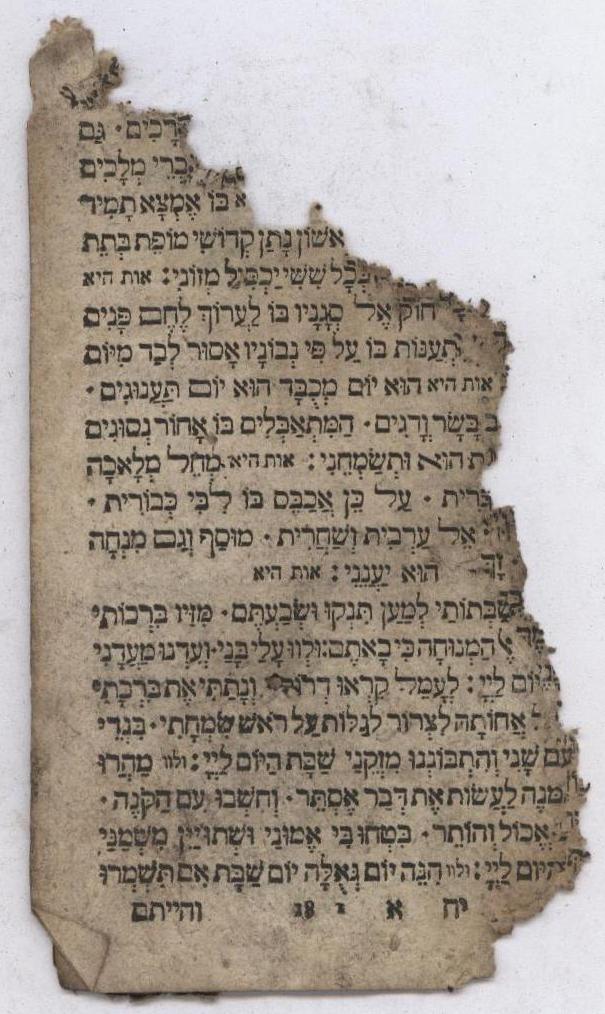 דְּרָכִים. גַּם
דִּבְרֵי מְלָכִים
בּוֹ אֶמְצָא תָמִיד
אשׁוֹן נָתַן קְדוֹשִׁי מוֹפֵת בְּתֵת
בְּכָל שִׁשִּׁי יַכְפִּיל מְזוֹנִי: אות היא
חוֹק אֶל סְגָנָיו בּוֹ לַעֲרוֹךְ לֶחֶם פָּנִים
תְעַנּוֹת בּוֹ עַל פִּי נְבוֹנָיו אָסוּר לְבַד מִיּוֹם
אות היא הוּא יוֹם מְכֻבָּד הוּא יוֹם תַּעֲנוּגִים.
ב בָּשָׂר וְדָגִים. הַמִּתְאַבְּלִים בּוֹ אָחוֹר נְסוֹגִים
ת הוּא וּתְשַׂמְּחֵנִי: אות היא. מֵחֵל מְלָאכָה
בְּרִית. עַל כֵּן אֲכַבֵּס בּוֹ לִבִּי כְּבוֹרִית.
אֵל עַרְבִית וְשַׁחֲרִית. מוּסַף וְגַם מִנְחָה
הוּא יַעֲנֵנִי: אות היא
שַׁבְּתוֹתַי לְמַעַן תִּנְקוּ וּשְׂבַעְתֶּם. מִזִּיו בִּרְכוֹתַי
אֶל הַמְּנוּחָה כִּי בָאתֶם: וּלְווּ עָלַי בָּנַי. וְעִדְנוּ מַעֲדָנַי
יוֹם לַיְיָ: לֶעָמֵל קִרְאוּ דְרוֹר וְנָתַתִּי אֶת בִּרְכָתִי
אֲחוֹתָהּ לִצְרוֹר לְגַלּוֹת עַל רֹאשׁ שִׂמְחָתִי. בִּגְדֵי
עִם שָׁנִי וְהִתְבּוֹנְנוּ מִזְּקֵנַי שַׁבָּת הַיּוֹם לַיְיָ: ולוו מַהֲרוּ
מָנֶה לַעֲשׂוֹת אֶת דְּבַר אֶסְתֵּר. וְחִשְּׁבוּ עִם הַקּוֹנֶה.
אָכוֹל וְהוֹתֵר. בִּטְחוּ בִי אֱמוּנַי וּשְׁתוּ יֵין מִשְׁמַנַּי
הַיּוֹם לַיְיָ: ולוו הִנֵּה יוֹם גְּאֻלָּה יוֹם שַׁבָּת אִם תִּשְׁמֹרוּ
יח א 1 18 והייתם